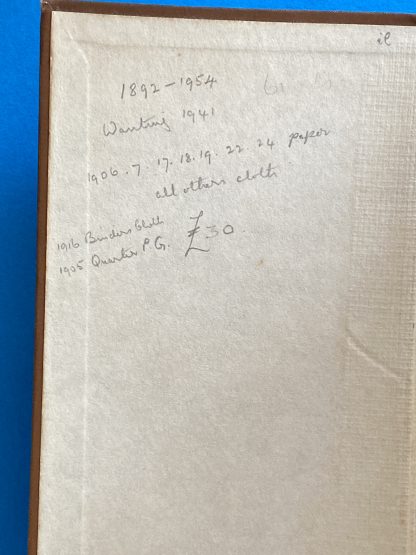 il
1892-1954
Wanting 1941
1906. 7. 17. 18. 19. 22. 24 paper
all others cloth.
1916 Binders Cloth
1905 Quarter P G. £30.